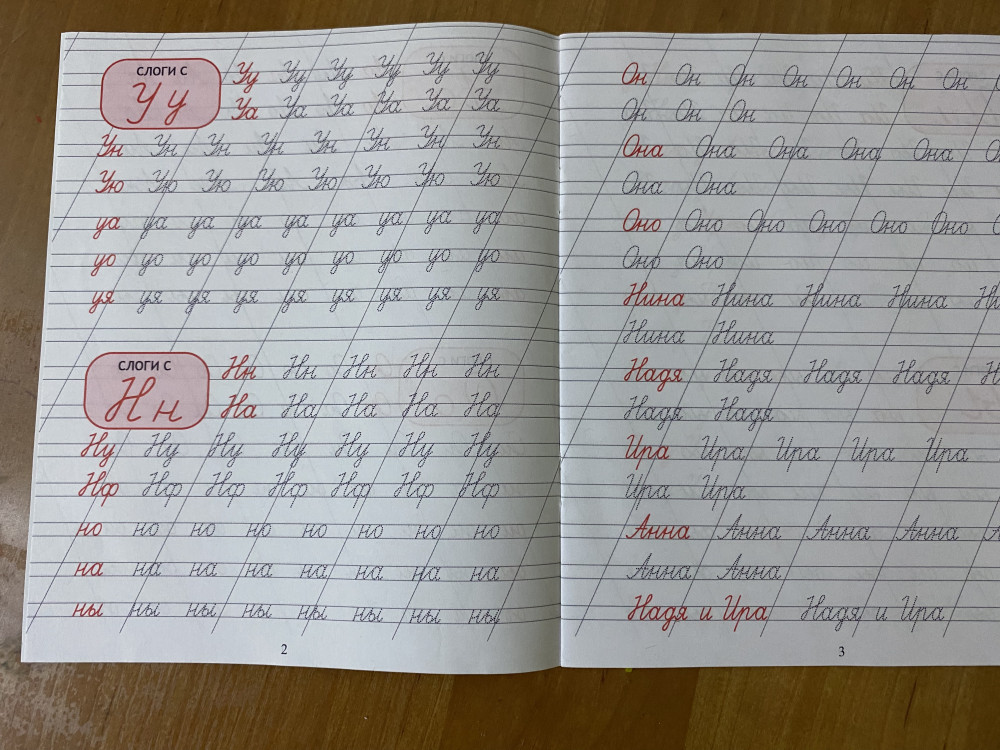 СЛОГИ С
У у
Уу Уу Уу Уу Уу Уу
Уа Уа Уа Уа Уа Уа
Ун Ун Ун Ун Ун Ун Ун Ун
Ую Ую Ую Ую Ую Ую Ую Ую
уа уа уа уа уа уа уа уа уа
уо уо уо уо уо уо уо уо уо
уя уя уя уя уя уя уя уя уя
СЛОГИ С
Н н
Нн Нн Нн Нн Нн
На На На На На
Ну Ну Ну Ну Ну Ну Ну
Нф Нф Нф Нф Нф Нф Нф
но но но но но но но но
на на на на на на на на
ны ны ны ны ны ны ны ны
2
Он Он Он Он Он Он Он
Он Он Он
Она Она Она Она Она
Она Она
Оно Оно Оно Оно Оно Оно
Оно Оно
Нина Нина Нина Нина
Нина Нина
Надя Надя Надя Надя
Надя Надя
Ира Ира Ира Ира Ира
Ира Ира
Анна Анна Анна Анна
Анна Анна
Надя и Ира Надя и Ира
3